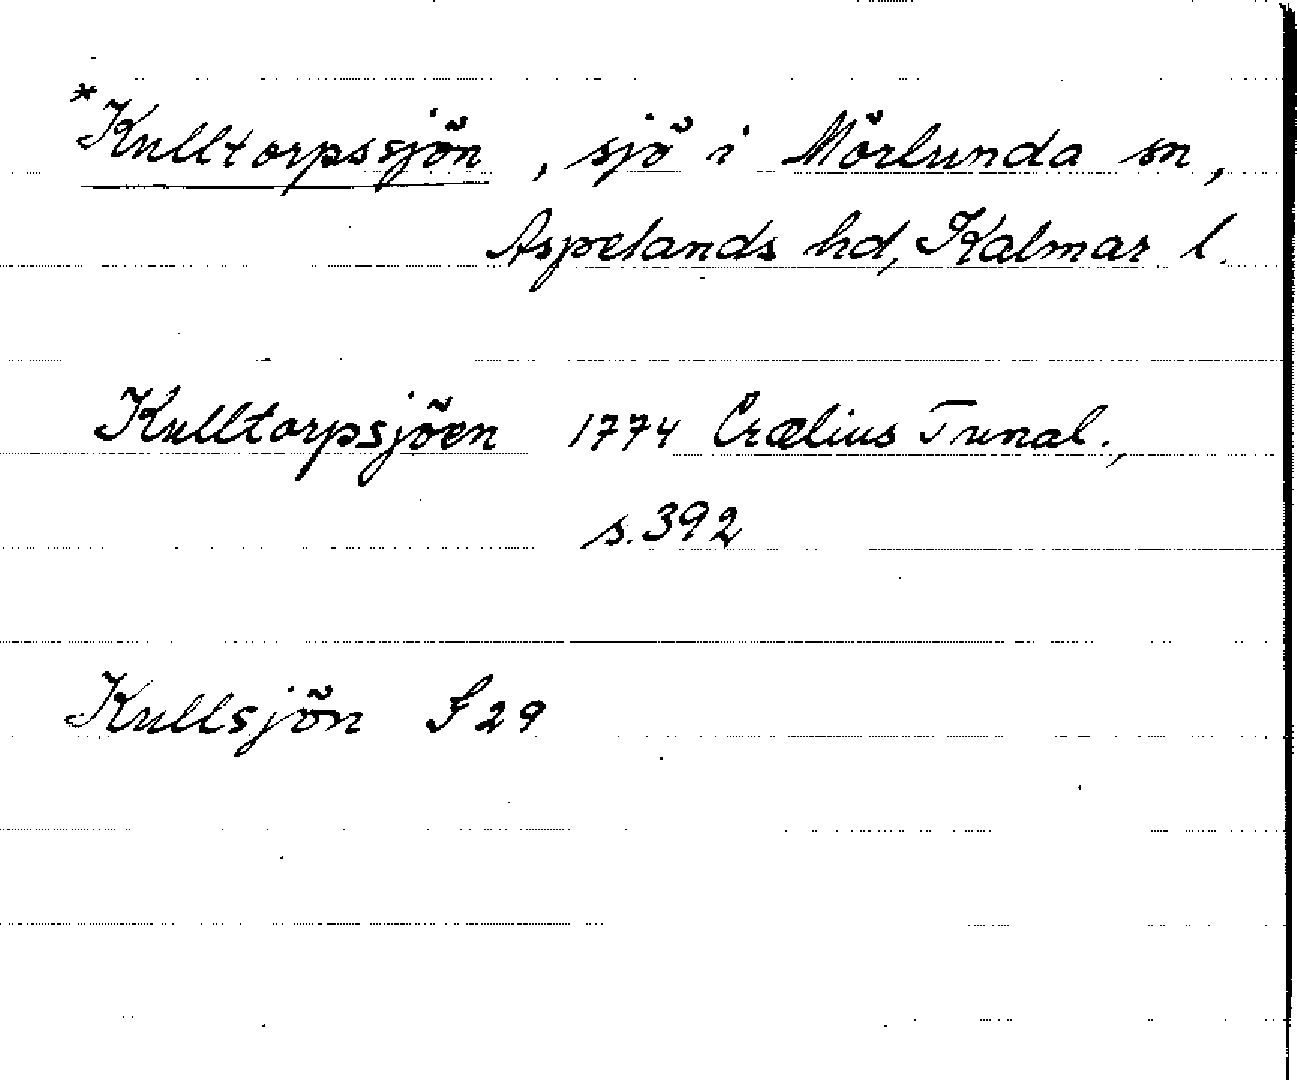 *Kulltorpssjön, sjö i Mörlunda sn,
Aspelands hd, Kalmar l.
Kulltorpsjöen 1774 Crælius Tunal.,
s. 392
Kullsjön S 29